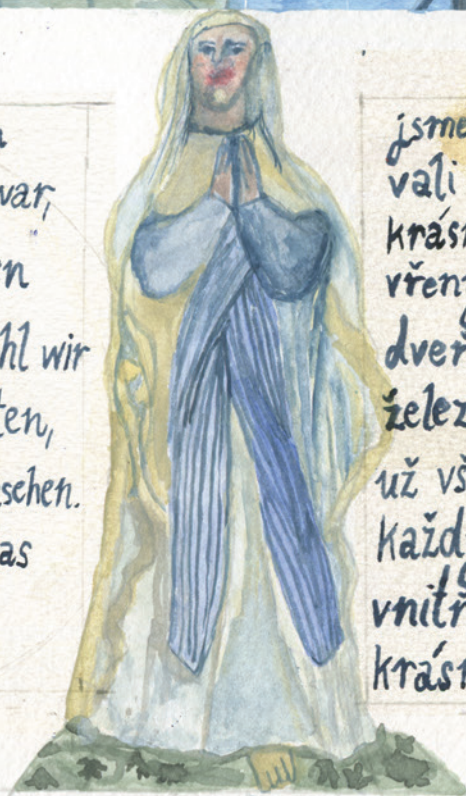 war,
wir
sehen.
as
jsme
vali
krás
vřen
dveř
želez
už vš
každ
vnitř
krás